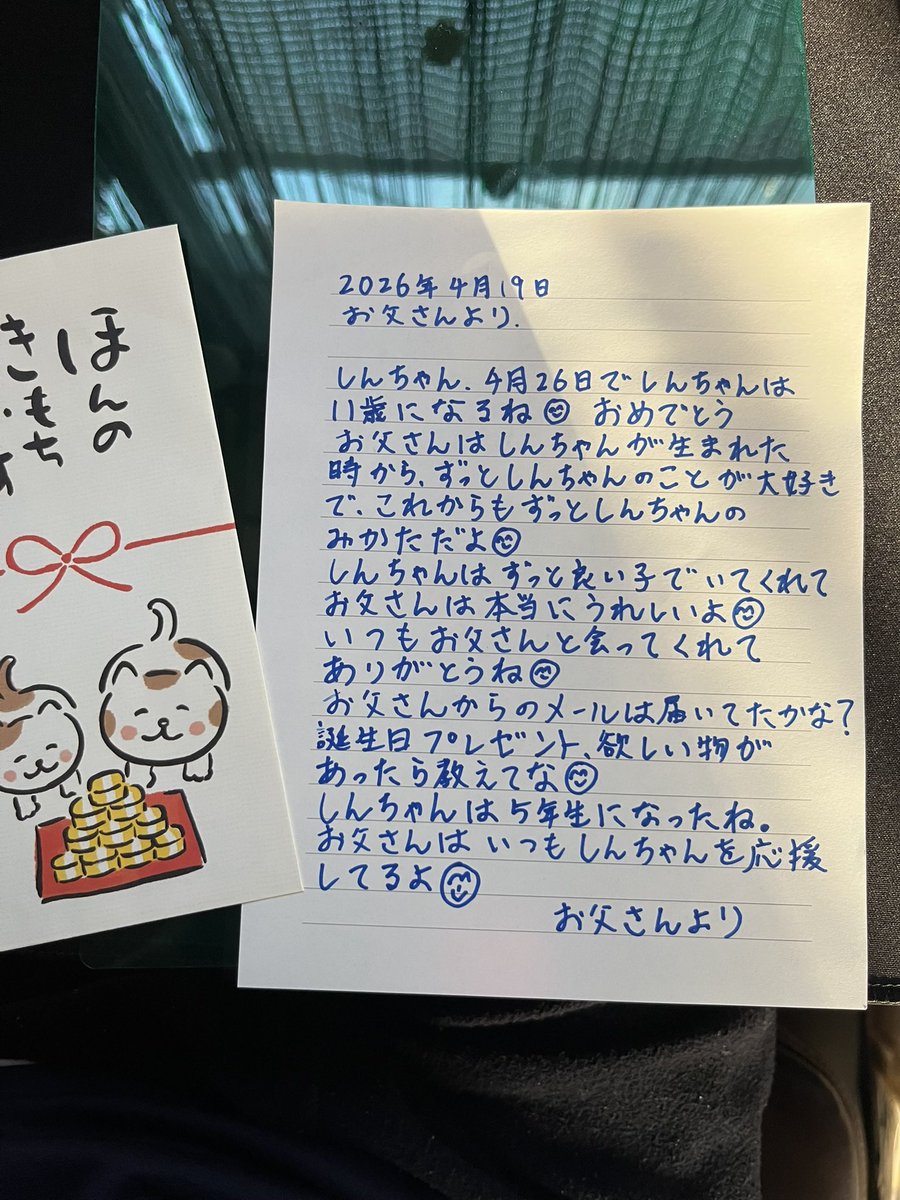 ほんの
き
もち
2026年4月19日
お父さんより.
しんちゃん、4月26日でしんちゃんは
11歳になるね おめでとう
お父さんはしんちゃんが生まれた
時から、ずっとしんちゃんのことが大好き
で、これからもずっとしんちゃんの
みかただよ
しんちゃんはずっと良い子でいてくれて
お父さんは本当にうれしいよ
いつもお父さんと会ってくれて
ありがとうね
お父さんからのメールは届いてたかな?
誕生日プレゼント、欲しい物が
あったら教えてな
しんちゃんは5年生になったね。
お父さんはいつもしんちゃんを応援
してるよ
お父さんより